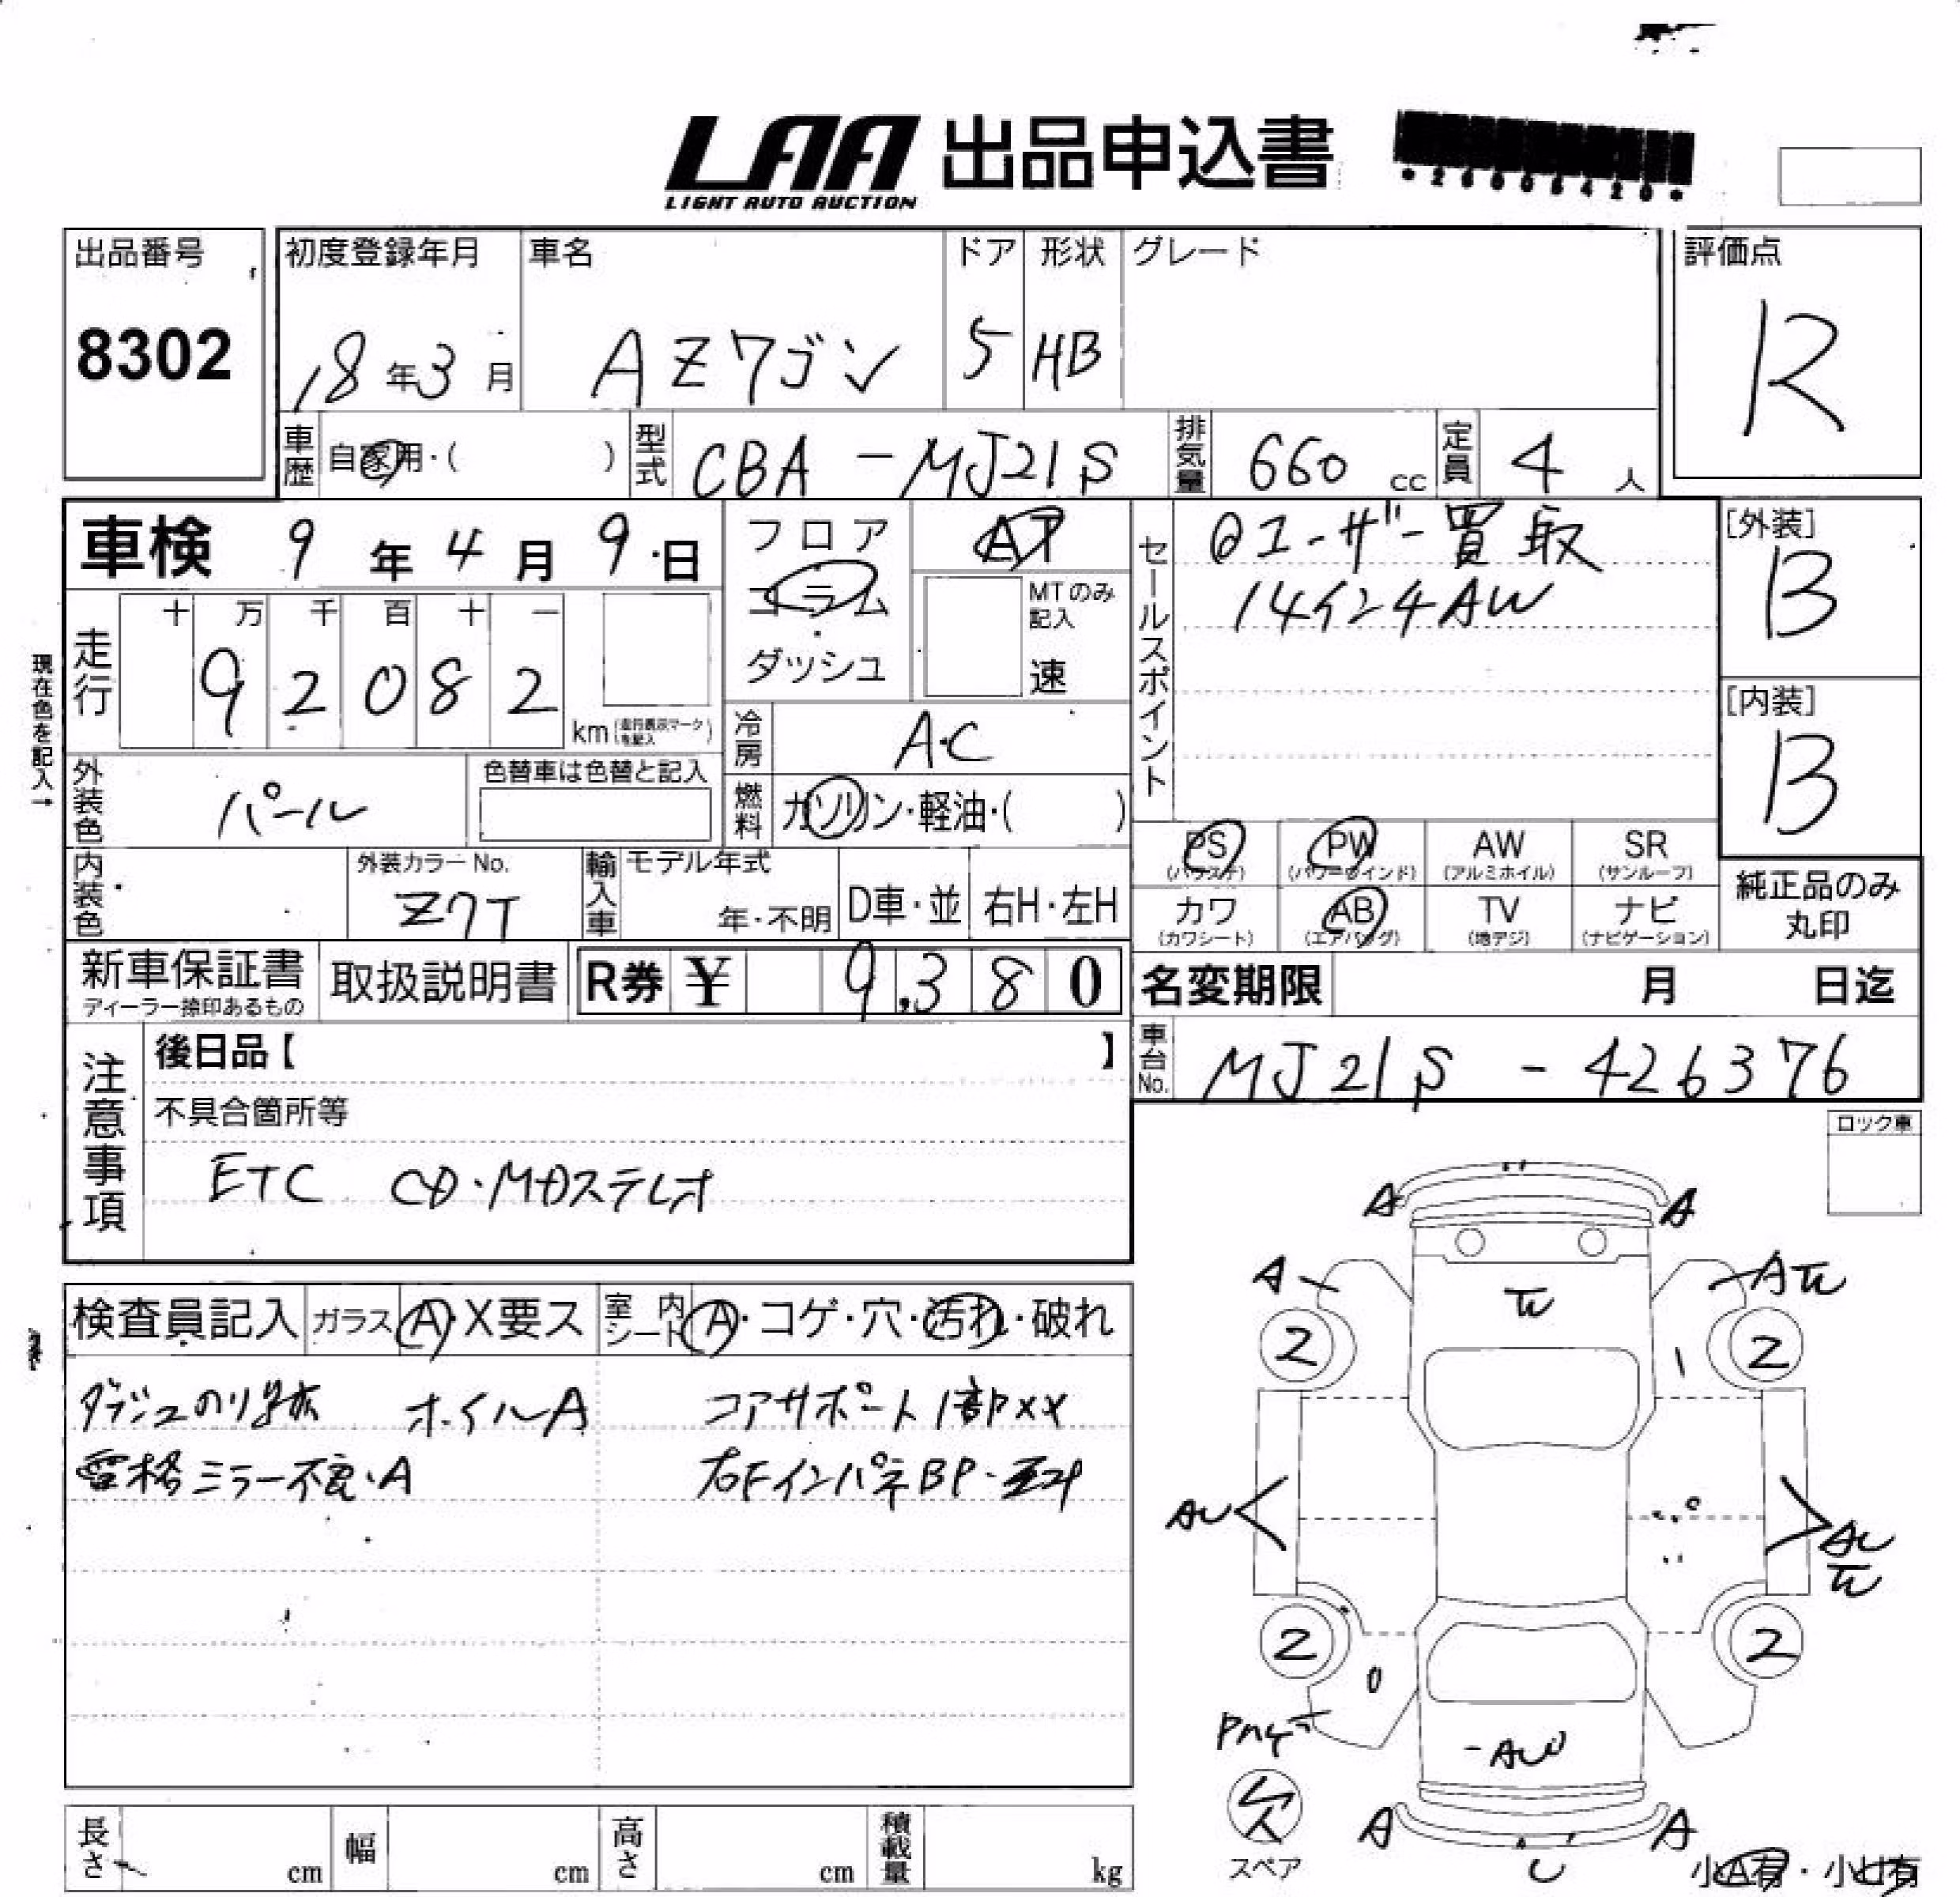 LAA 出品申込書
LIGHT AUTO AUCTION
出品番号
8302
初度登録年月
18年3月
車名
AZワゴン
ドア
5
形状
HB
グレード
評価点
R
車歴
自家用・( )
型式
CBA-MJ21S
排気量
660 cc
定員
4 人
車検 9年4月9日
フロア
コラム
・
ダッシュ
AT
MTのみ記入
速
セールスポイント
ユーザー買取
14インチAW
[外装]
B
[内装]
B
現在色を記入→
走行
十 万 千 百 十 一
9 2 0 8 2
km
冷房
A・C
燃料
ガソリン・軽油・( )
外装色
パール
色替車は色替と記入
内装色
外装カラーNo.
Z7T
輸入車
モデル年式
年・不明
D車・並
右H・左H
PS
PW
(パワーウインド)
AW
(アルミホイル)
SR
(サンルーフ)
カワ
(カワシート)
AB
(エアバッグ)
TV
(地デジ)
ナビ
(ナビゲーション)
純正品のみ
丸印
新車保証書
ディーラー捺印あるもの
取扱説明書
R券 ¥ 9,380
名変期限 月 日迄
車台No.
MJ21S-426376
注意事項
後日品【 】
不具合箇所等
ETC CD・MDステレオ
ロック車
検査員記入
ガラス A・X要ス
室内シート A・コゲ・穴・汚れ・破れ
ダッシュのり跡 ホイルA
コアサポート1部XX
電格ミラー不良・A
右FインパネBP
A A
A
2 2
2 2
A A
欠
スペア
長さ cm
幅 cm
高さ cm
積載量 kg
小A有・小U有